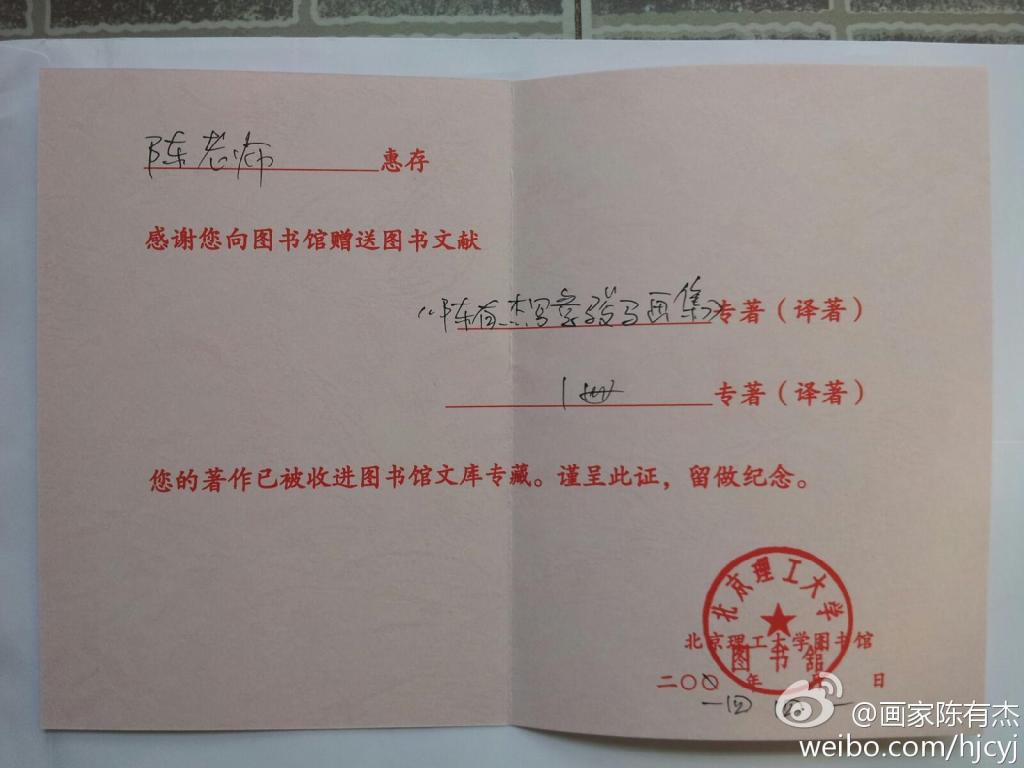 陈老师 惠存
感谢您向图书馆赠送图书文献
《陈有杰写意骏马画集》专著（译著）
1册 专著（译著）
您的著作已被收进图书馆文库专藏。谨呈此证，留做纪念。
北京理工大学
北京理工大学图书馆
图书馆
二〇〇 年 月 日
一四
@画家陈有杰
weibo.com/hjcyj